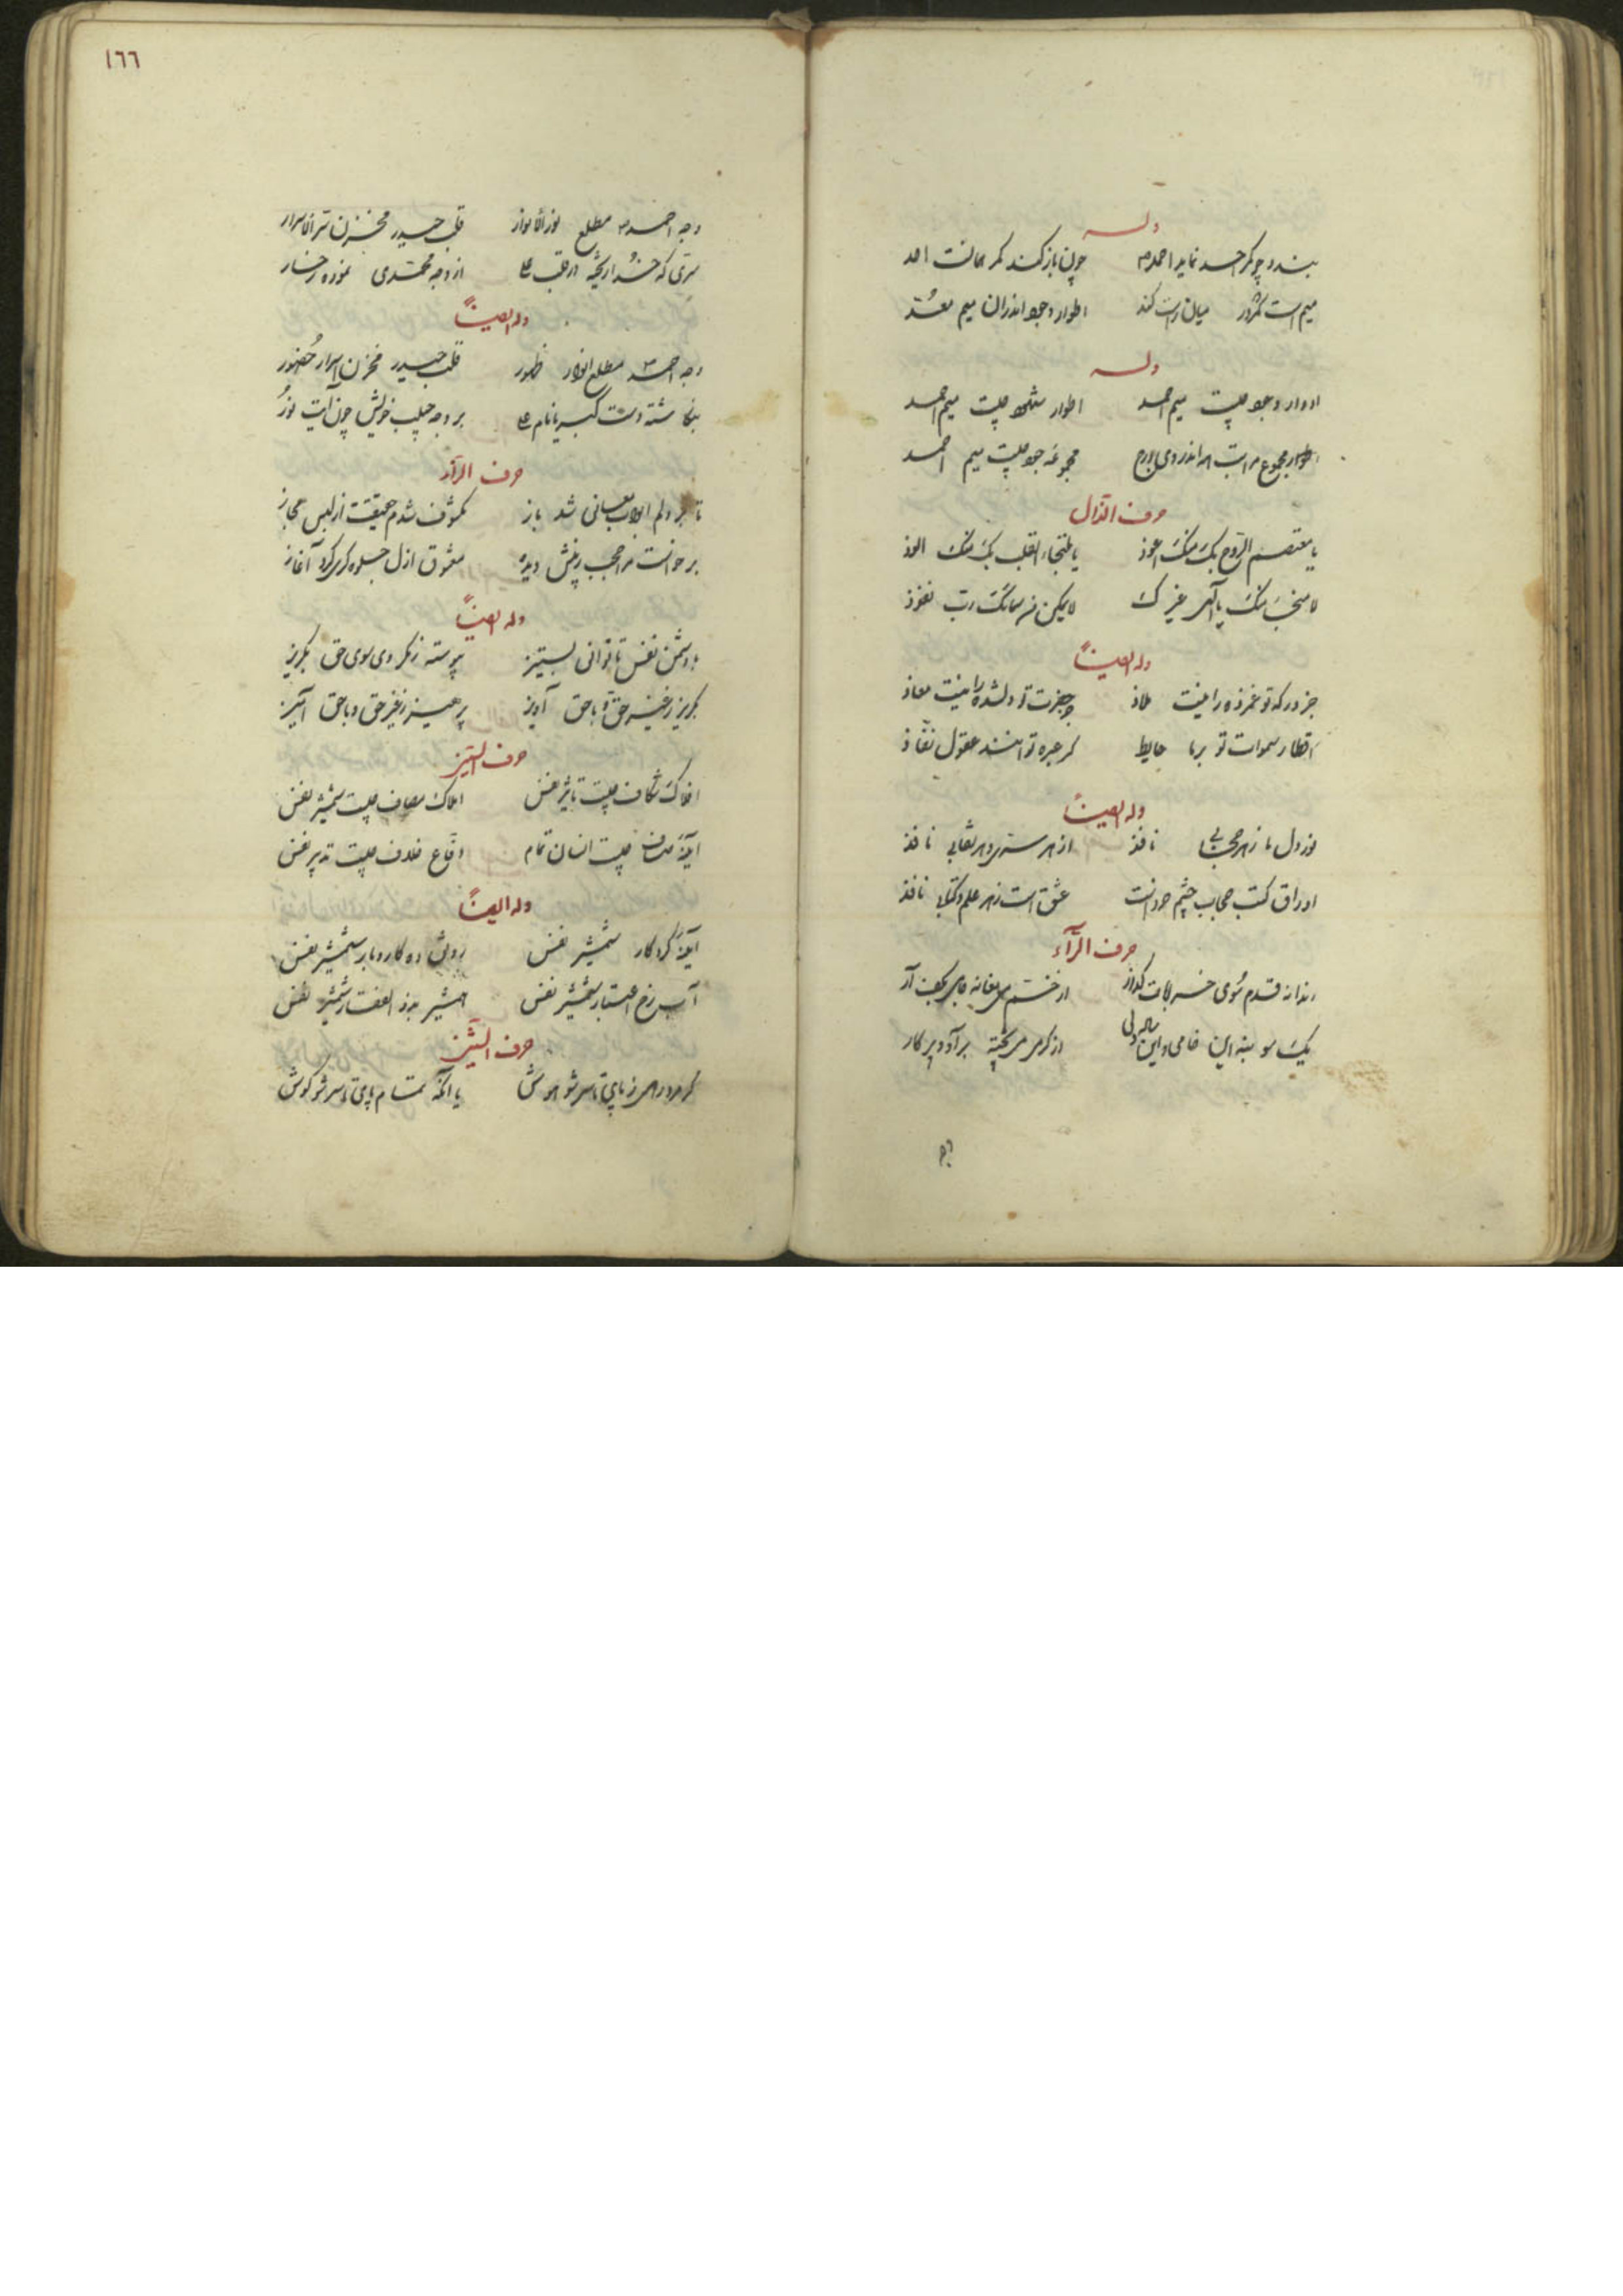 وله
بندد چو کمر احمد نماید احمد چون باز کند کمر همانست احد
میم است کمر در میان راست کند اطوار وجود اندران میم معد
وله
ادوار وجود چیست میم احمد اطوار شهود چیست میم احمد
مجموع مراتب اندر وی مجموعه جود چیست میم احمد
حرف الذال
یا معتصم الروح بک منک اعوذ یا ملتجاء القلب بک منک الوذ
لا منک یا الهی غیرک لا یمکن من سمائک رب نفوذ
وله ایضاً
جز درکه تو غمزده را نیست ملاذ جز حضرت تو دلشده را نیست معاذ
اقطار سموات تو بر ما حایط کر عبره توانند عقول نفاذ
وله ایضاً
نور دل ما زهر حجابی نافذ از هر ستری و هر نقابی نافذ
اوراق کتب حجاب چشم خردانست عشق است زهر علم و کتابی نافذ
حرف الرآء
رندانه قدم سوی خرابات گذار از خم می مغانه جامی بکف آر
یک سو بنه این خامی و این از کرمی می پخته برآور پر کار
١٦٦
وجه احمد مطلع نور الانوار قلب حیدر مخزن سر الاسرار
سری که خدا ریخته در قلب علی از وجه محمدی نموده رخسار
وله ایضاً
وجه احمد مطلع انوار ظهور قلب حیدر مخزن اسرار حضور
بنکاشته دست کبریا نام علی بر وجه حبیب خویش چون آیت نور
حرف الزآء
تا بر دلم ابواب معانی شد باز مکشوف شدم حقیقت از لبس مجاز
برخواست مرا حجب ز پیش دیده معشوق ازل جلوه کری کرد آغاز
وله ایضاً
با دشمن نفس تا توانی بستیز پیوسته ز مکر وی سوی حق بکریز
بکریز ز غیر حق و با حق آویز پرهیز ز غیر حق و با حق آمیز
حرف السین
افلاک شکاف چیست تاثیر نفس املاک مصاف چیست شمشیر نفس
آینه صاف چیست انسان تمام دفاع خلاف چیست تدبیر نفس
وله ایضاً
آینه کردکار شمشیر نفس رونق ده کار و بار شمشیر نفس
آب رخ اعتبار شمشیر نفس شمشیر نفس
حرف الشین
کر مرد رهی ز پای تا سر شو هوش یا آنکه تمام پای تا سر شو کوش